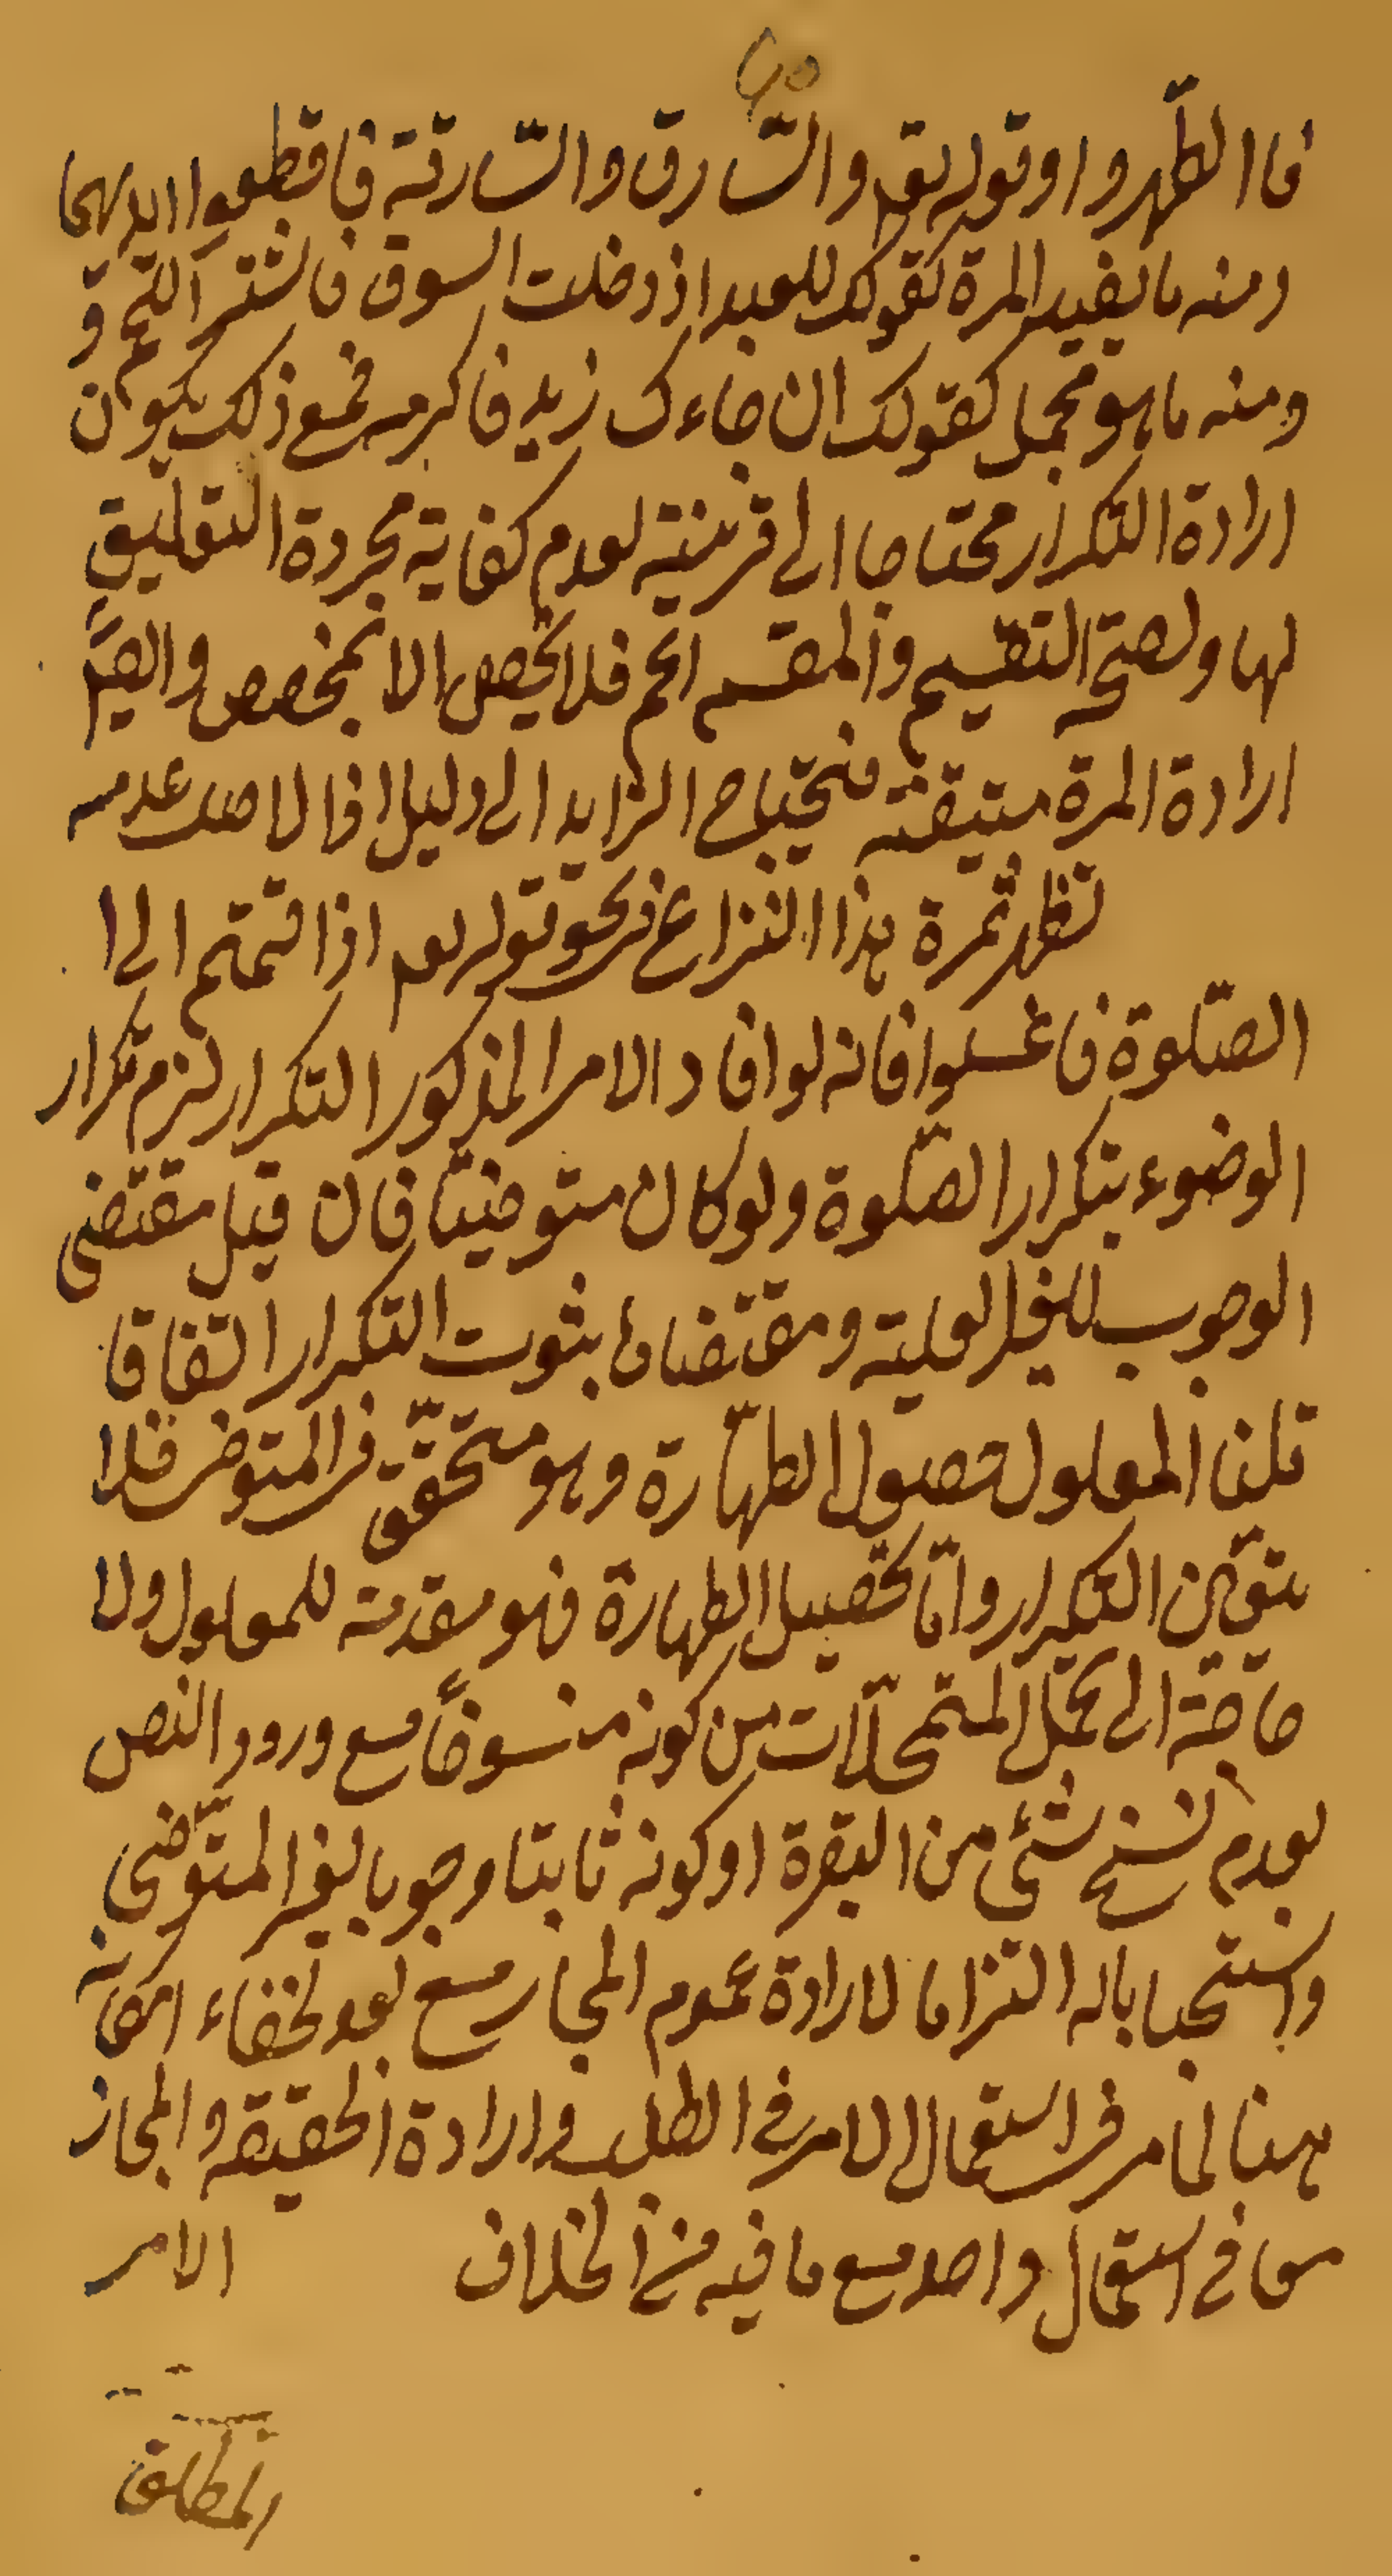 ٤٥
فاالطّهروا وقوله تع والسّارق والسّارقة فاقطعوا ايديهما
ومنه ما يفيد المرة كقولك للعبد اذ دخلت السوق فاشتر اللحم و
ومنه ما هو مجمل كقولك ان جاءك زيد فاكرمه فمع ذلك يكون
ارادة التكرار محتاجا الى قرينة لعدم كفاية مجردة التعليق
لها ولصحة التقسيم والمقسم اعم فلا يخص الا بمخصص وايضا
ارادة المرة متيقنة فيحتاج الزايد الى دليل اذ الاصل عدمه
تظهر ثمرة هذا النزاع في نحو قوله تعم اذا قمتم الى ا
الصّلوة فاغسلوا فانه لو افاد الامر المذكور التكرار لزم تكرار
الوضوء بتكرار الصّلوة ولو كان متوضيّا فان قيل مقتضى
الوجوب للغير العلية ومقتضاها بثوت التكرار اتفاقا
قلنا المعلول حصول الطهّارة وهو متحقّق في المتوضي فلا
يتعيّن التكرار وامّا تحصيل الطهارة فهو مقدمة للمعلول ولا
حاجة الى تمحّل المتمحّلات من كونه منسوخاً مع ورود النص
بعدم نسخ شئ من البقرة او كونه ثابتا وجوبا لغير المتوّضى
واستحبابا له التزاما لارادة عموم المجاز مع بعد لخفاء امكانه
هنا لما مر في استعمال الامر في الطلب وارادة الحقيقة والمجاز
معا في استعمال واحد مع ما فيه من الخلاف الامر
المطلق